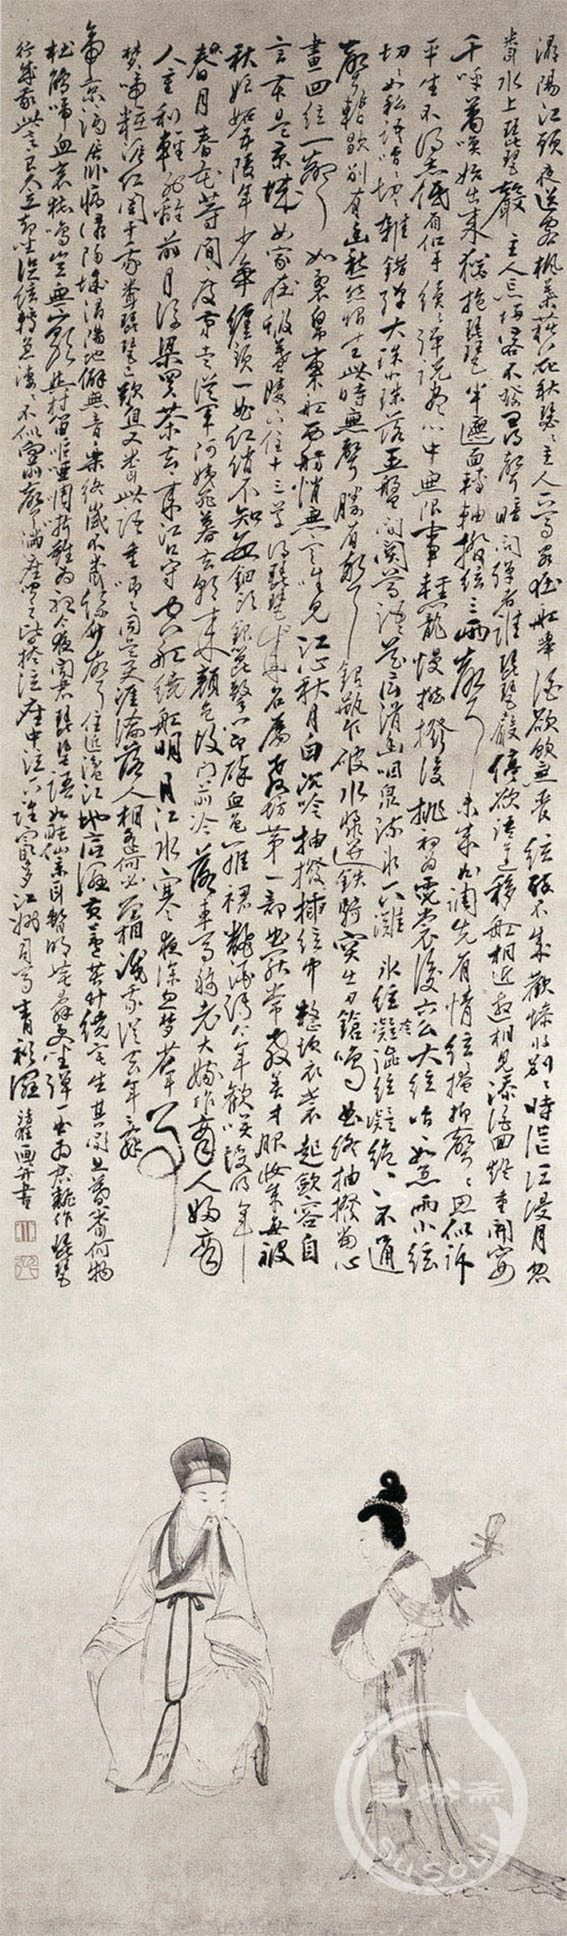 潯陽江頭夜送客楓葉荻花秋瑟瑟主人下馬客在船舉酒欲飲無管絃醉不成歡慘將別別時茫茫江浸月忽
聞水上琵琶聲主人忘歸客不發尋聲暗問彈者誰琵琶聲停欲語遲移船相近邀相見添酒回燈重開宴
千呼萬喚始出來猶抱琵琶半遮面轉軸撥絃三兩聲未成曲調先有情絃絃掩抑聲聲思似訴
平生不得志低眉信手續續彈說盡心中無限事輕攏慢撚撥復挑初為霓裳後六幺大絃嘈嘈如急雨小絃
切切如私語嘈嘈切切雜錯彈大珠小珠落玉盤間關鶯語花底滑幽咽泉流水下灘氷絃冷澀絃凝絕凝絕不通
聲暫歇別有幽愁暗恨生此時無聲勝有聲銀瓶乍破水漿迸鐵騎突出刀鎗鳴曲終抽撥當心
畫四絃一聲如裂帛東船西舫悄無言唯見江心秋月白沉吟抽撥插絃中整頓衣裳起斂容自
言本是京城女家在蝦蟆陵下住十三學得琵琶成名屬教坊第一部曲罷常教善才服妝成每被
秋娘妒五陵年少爭纏頭一曲紅綃不知數鈿頭銀篦擊節碎血色羅裙翻酒污今年歡笑復明年
春月春花等閑度弟走從軍阿姨死暮去朝來顏色故門前冷落車馬稀老大嫁作商人婦商
人重利輕別離前月浮梁買茶去來江口守空船繞船明月江水寒夜深忽夢少年事
夢啼粧淚紅闌干我聞琵琶已歎息又聞此語重唧唧同是天涯淪落人相逢何必曾相識我從去年辭
帝京謫居臥病潯陽城潯陽地僻無音樂終歲不聞絲竹聲住近湓江地低濕黃蘆苦竹繞宅生其間旦暮聞何物
杜鵑啼血哀猿鳴豈無山歌與村笛嘔啞啁哳難為聽今夜聞君琵琶語如聽仙樂耳暫明莫辭更坐彈一曲為君翻作琵琶
行感我此言良久立卻坐促絃絃轉急淒淒不似向前聲滿座聞之皆掩泣座中泣下誰最多江州司馬青衫濕
清狂畫并書